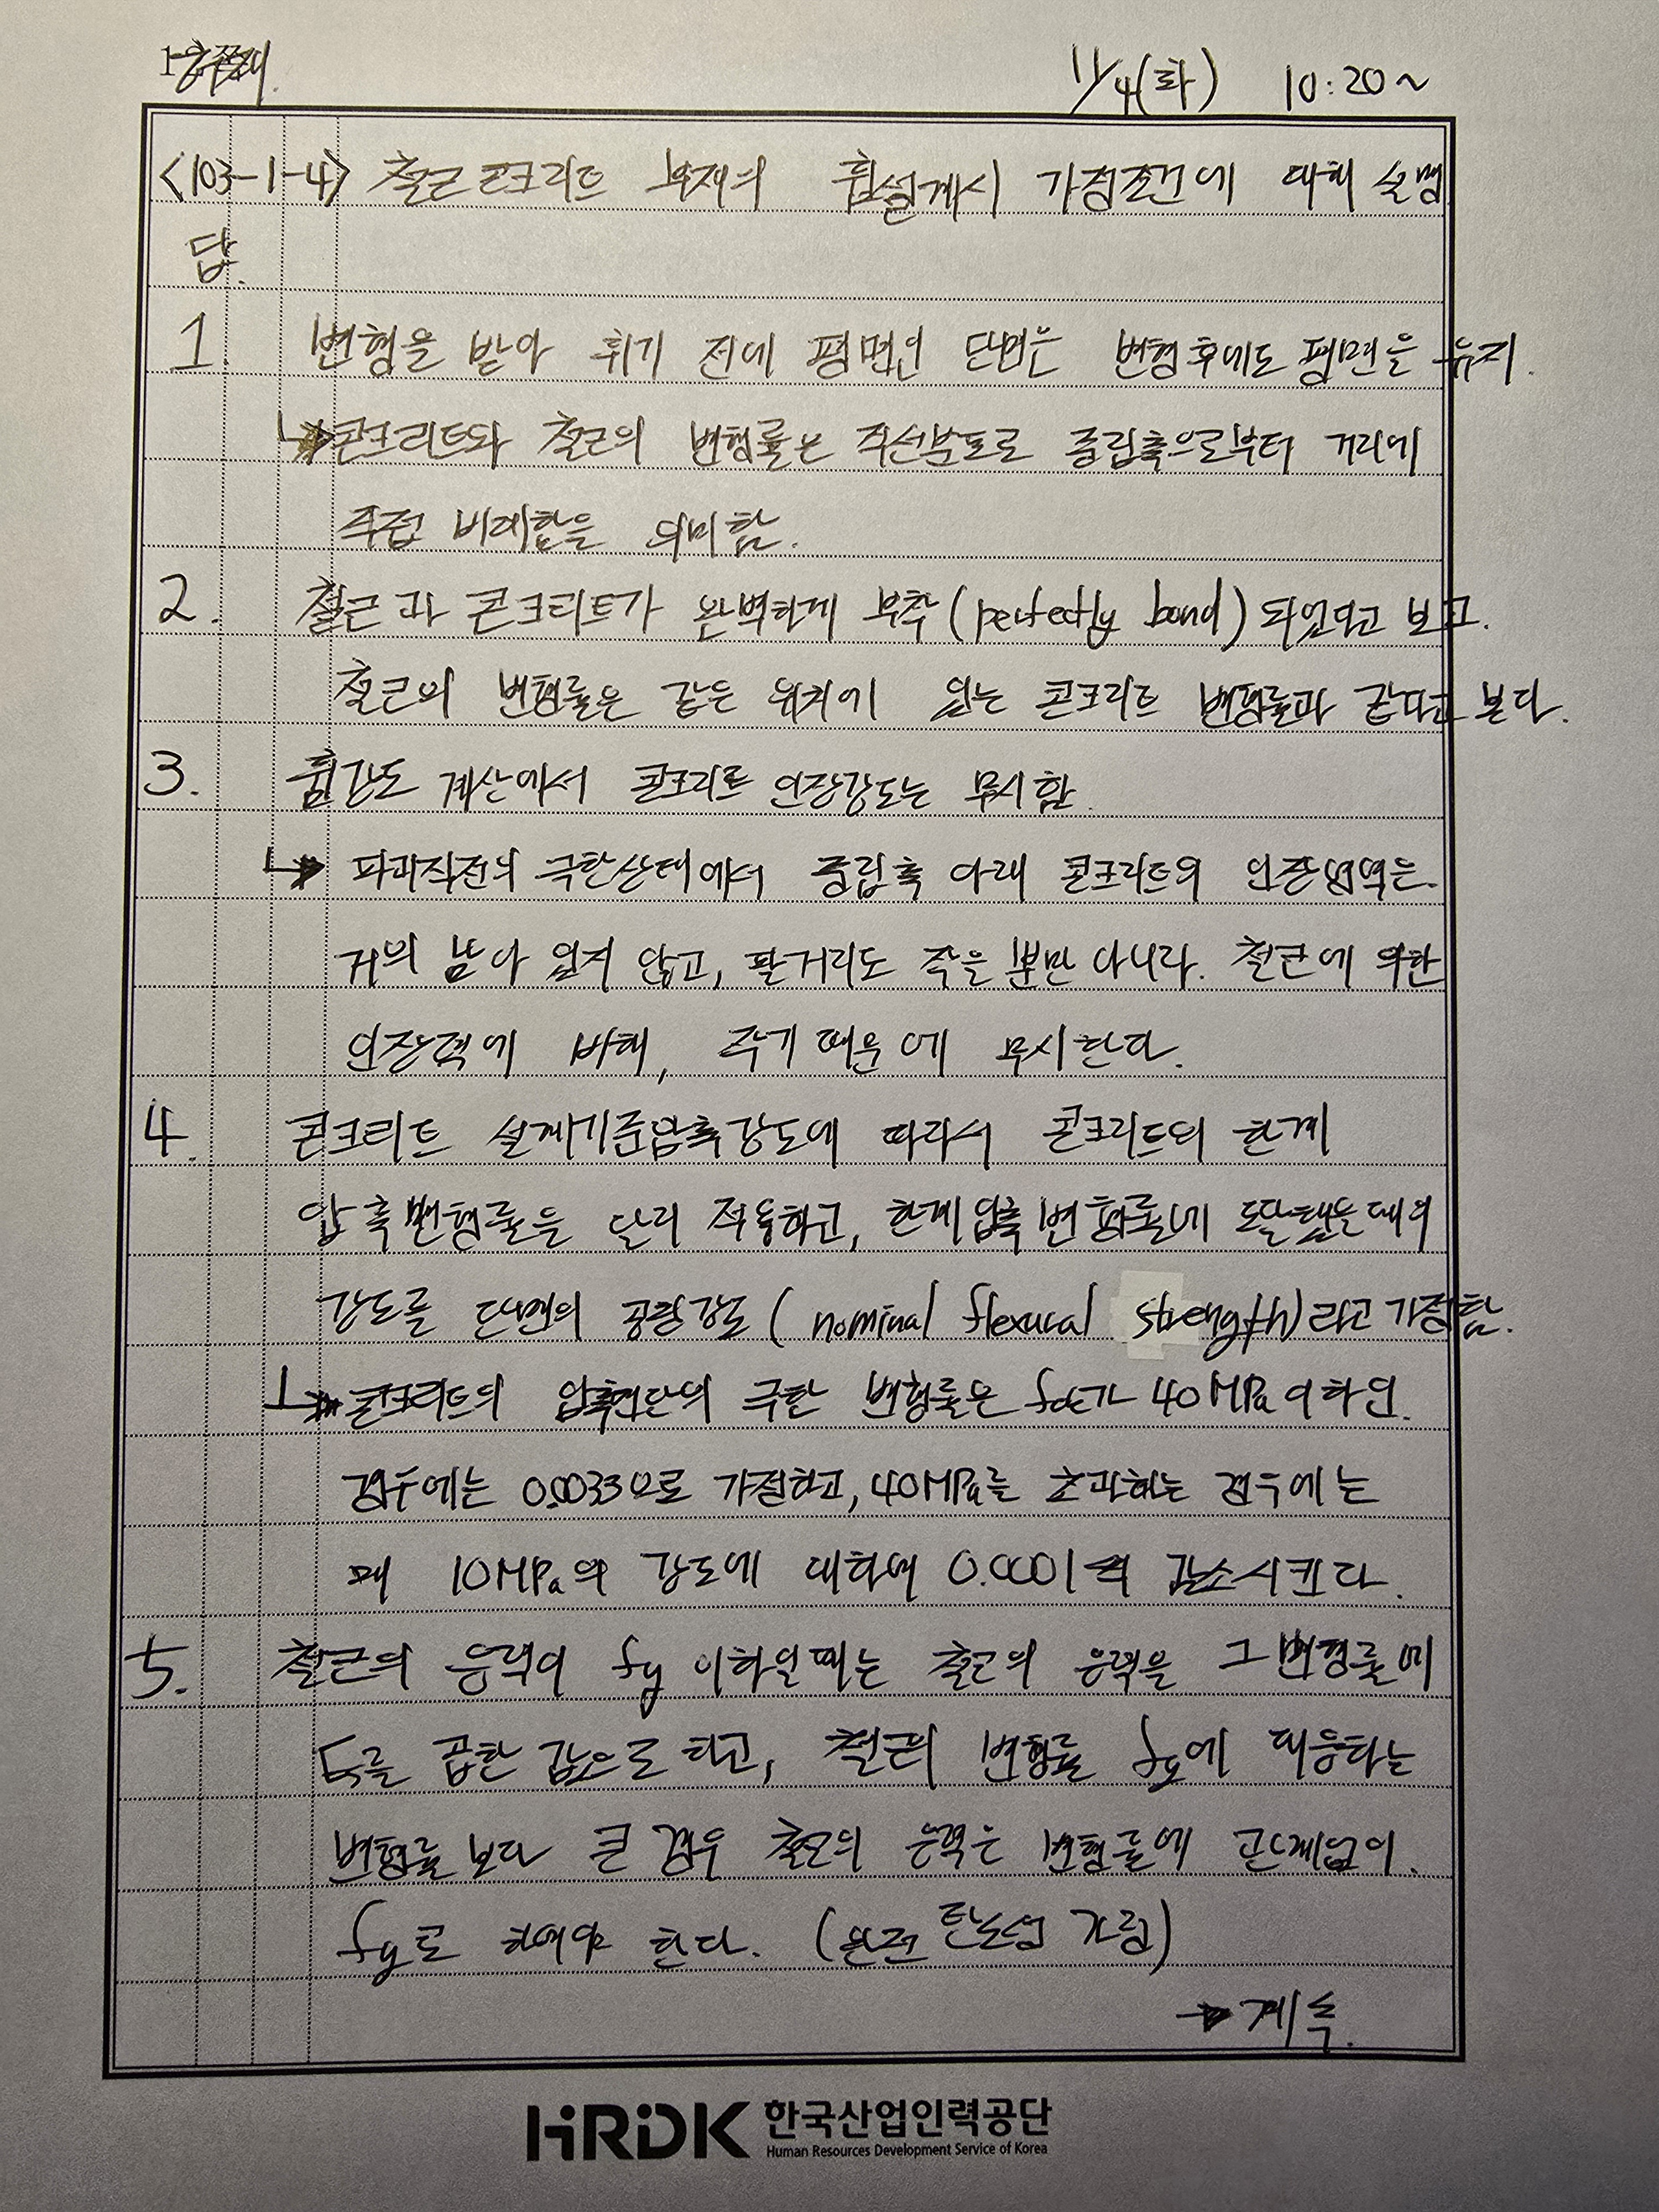 11/4(화) 10:20~
<103-1-4> 철근콘크리트 부재의 휨설계시 가정조건에 대해 설명
답.
1. 변형을 받아 휘기 전에 평면인 단면은 변형후에도 평면을 유지.
↳ 콘크리트와 철근의 변형률은 직선분포로 중립축으로부터 거리에
직접 비례함을 의미함.
2. 철근과 콘크리트가 완벽하게 부착(perfectly bond)되었다고 보고.
철근의 변형률은 같은 위치에 있는 콘크리트 변형률과 같다고 본다.
3. 휨강도 계산에서 콘크리트 인장강도는 무시함.
↳ 파괴직전의 극한상태에서 중립축 아래 콘크리트의 인장영역은.
거의 남아 있지 않고, 팔거리도 작을 뿐만 아니라. 철근에 의한
인장력에 비해, 작기 때문에 무시한다.
4. 콘크리트 설계기준압축강도에 따라서 콘크리트의 한계
압축변형률을 달리 적용하고, 한계압축변형률에 도달했을때의
강도를 단면의 공칭강도(nominal flexural strength)라고 가정함.
↳ 콘크리트의 압축연단의 극한 변형률은 fck가 40MPa 이하인.
경우에는 0.0033으로 가정하고, 40MPa를 초과하는 경우에는
매 10MPa의 강도에 대하여 0.0001씩 감소시킨다.
5. 철근의 응력이 fy 이하일때는 철근의 응력을 그 변형률에
Es를 곱한 값으로 하고, 철근의 변형률 fy에 대응하는
변형률보다 큰 경우 철근의 응력은 변형률에 관계없이.
fy로 하여야 한다. (완전 탄소성 거동)
→ 계속.
HRDK 한국산업인력공단
Human Resources Development Service of Korea